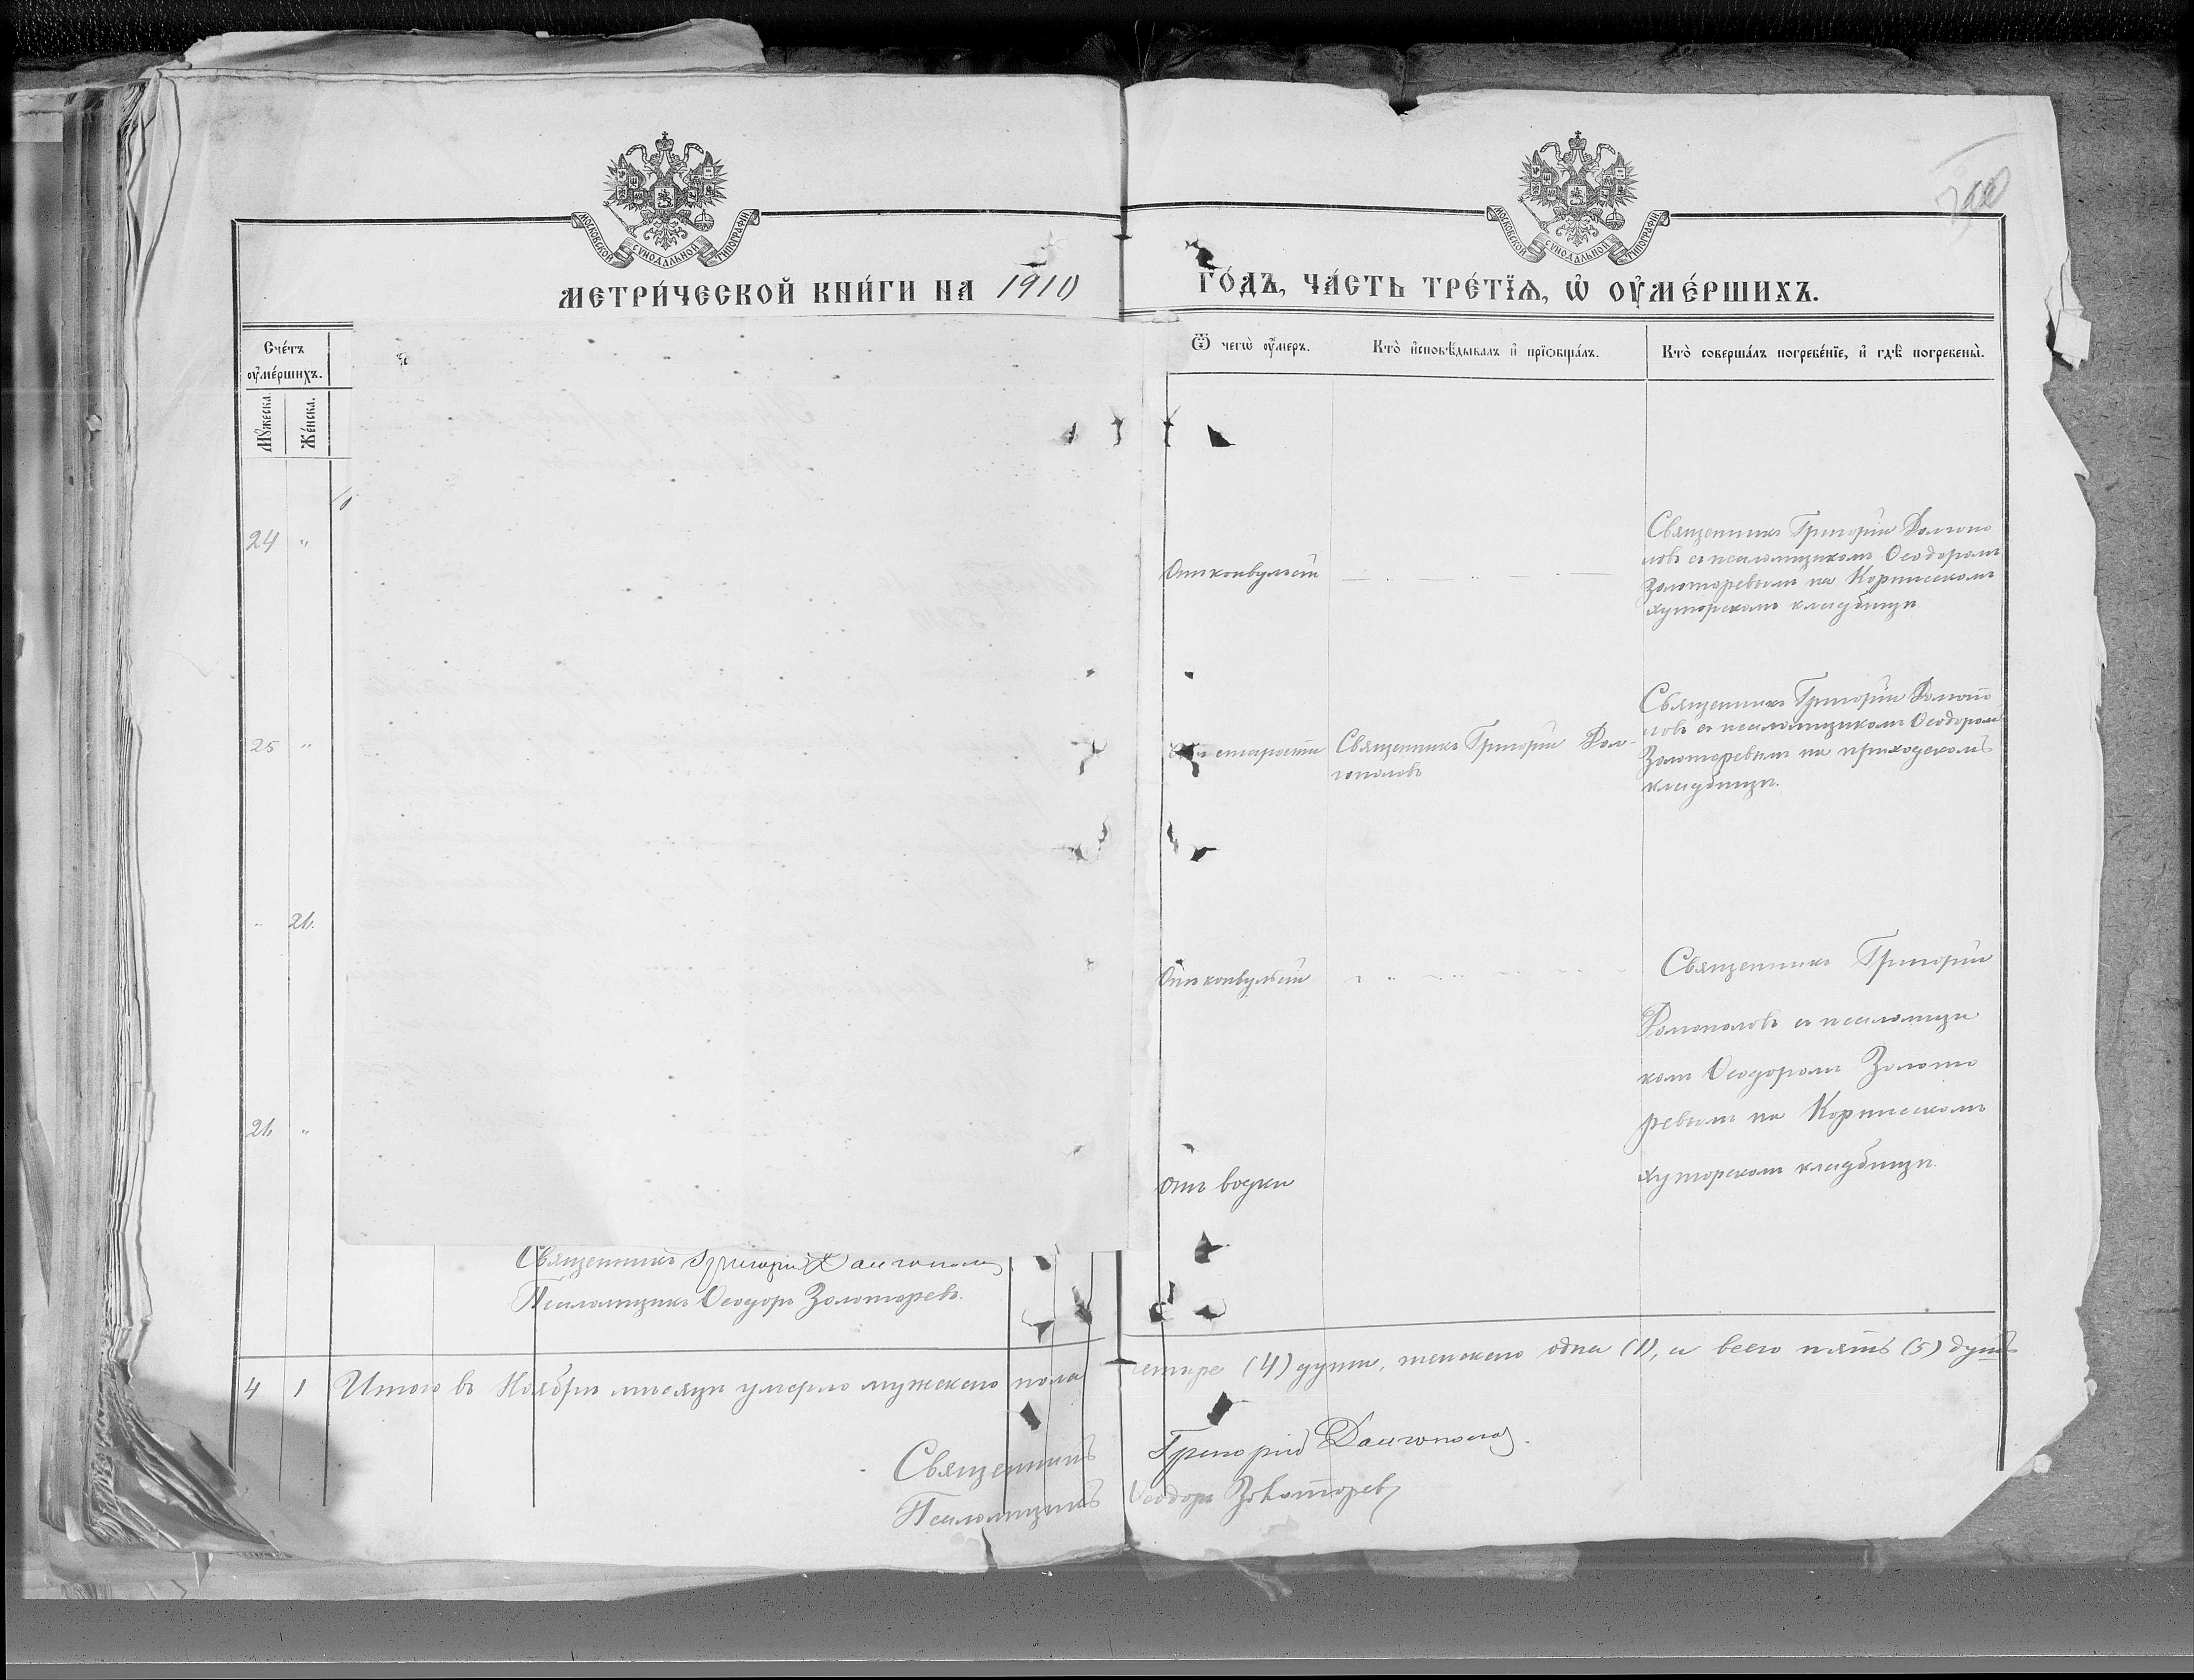 МОСКОВСКОЙ СѴНОДАЛЬНОЙ ТИПОГРАФІИ
МОСКОВСКОЙ СѴНОДАЛЬНОЙ ТИПОГРАФІИ
МЕТРИ́ЧЕСКОЙ КНИ́ГИ НА 1910 ГО́ДЪ, ЧА́СТЬ ТРЕ́ТЇѦ, Ѡ҆ ОУ҆МЕ́РШИХЪ.
Сче́тъ
оу҆ме́ршихъ.
Мꙋ́жеска.
Же́нска.
Ѿ чегѡ̀ оу҆́меръ.
Кто̀ и҆сповѣ́дывалъ и҆ прїѡбща́лъ.
Кто̀ соверша́лъ погребе́нїе, и҆ гдѣ̀ погребены̀.
24 "
Отъ конвульсій
Священникъ Григорій Долгопо
ловъ съ псаломщикомъ Ѳеодоромъ
Золоторевымъ на
хуторскомъ кладбищѣ
25 "
Отъ старости
Священникъ Григорій Дол-
гополовъ
Священникъ Григорій Долгопо
ловъ съ псаломщикомъ Ѳеодоромъ
Золоторевымъ на приходскомъ
кладбищѣ.
" 21.
Отъ конвульсій
Священникъ Григорій
Долгополовъ съ псаломщи
комъ Ѳеодоромъ Золото
ревымъ на
хуторскомъ кладбищѣ.
26 "
Отъ водки
Священникъ Григорій Долгополов
Псаломщикъ Ѳеодоръ Золоторевъ.
4 1 Итого въ Ноябрѣ мѣсяцѣ умерло мужского пола четыре (4) души, женского одна (1), а всего пять (5) душъ
Священникъ Григорій Долгополов.
Псаломщикъ Ѳеодоръ Золоторев